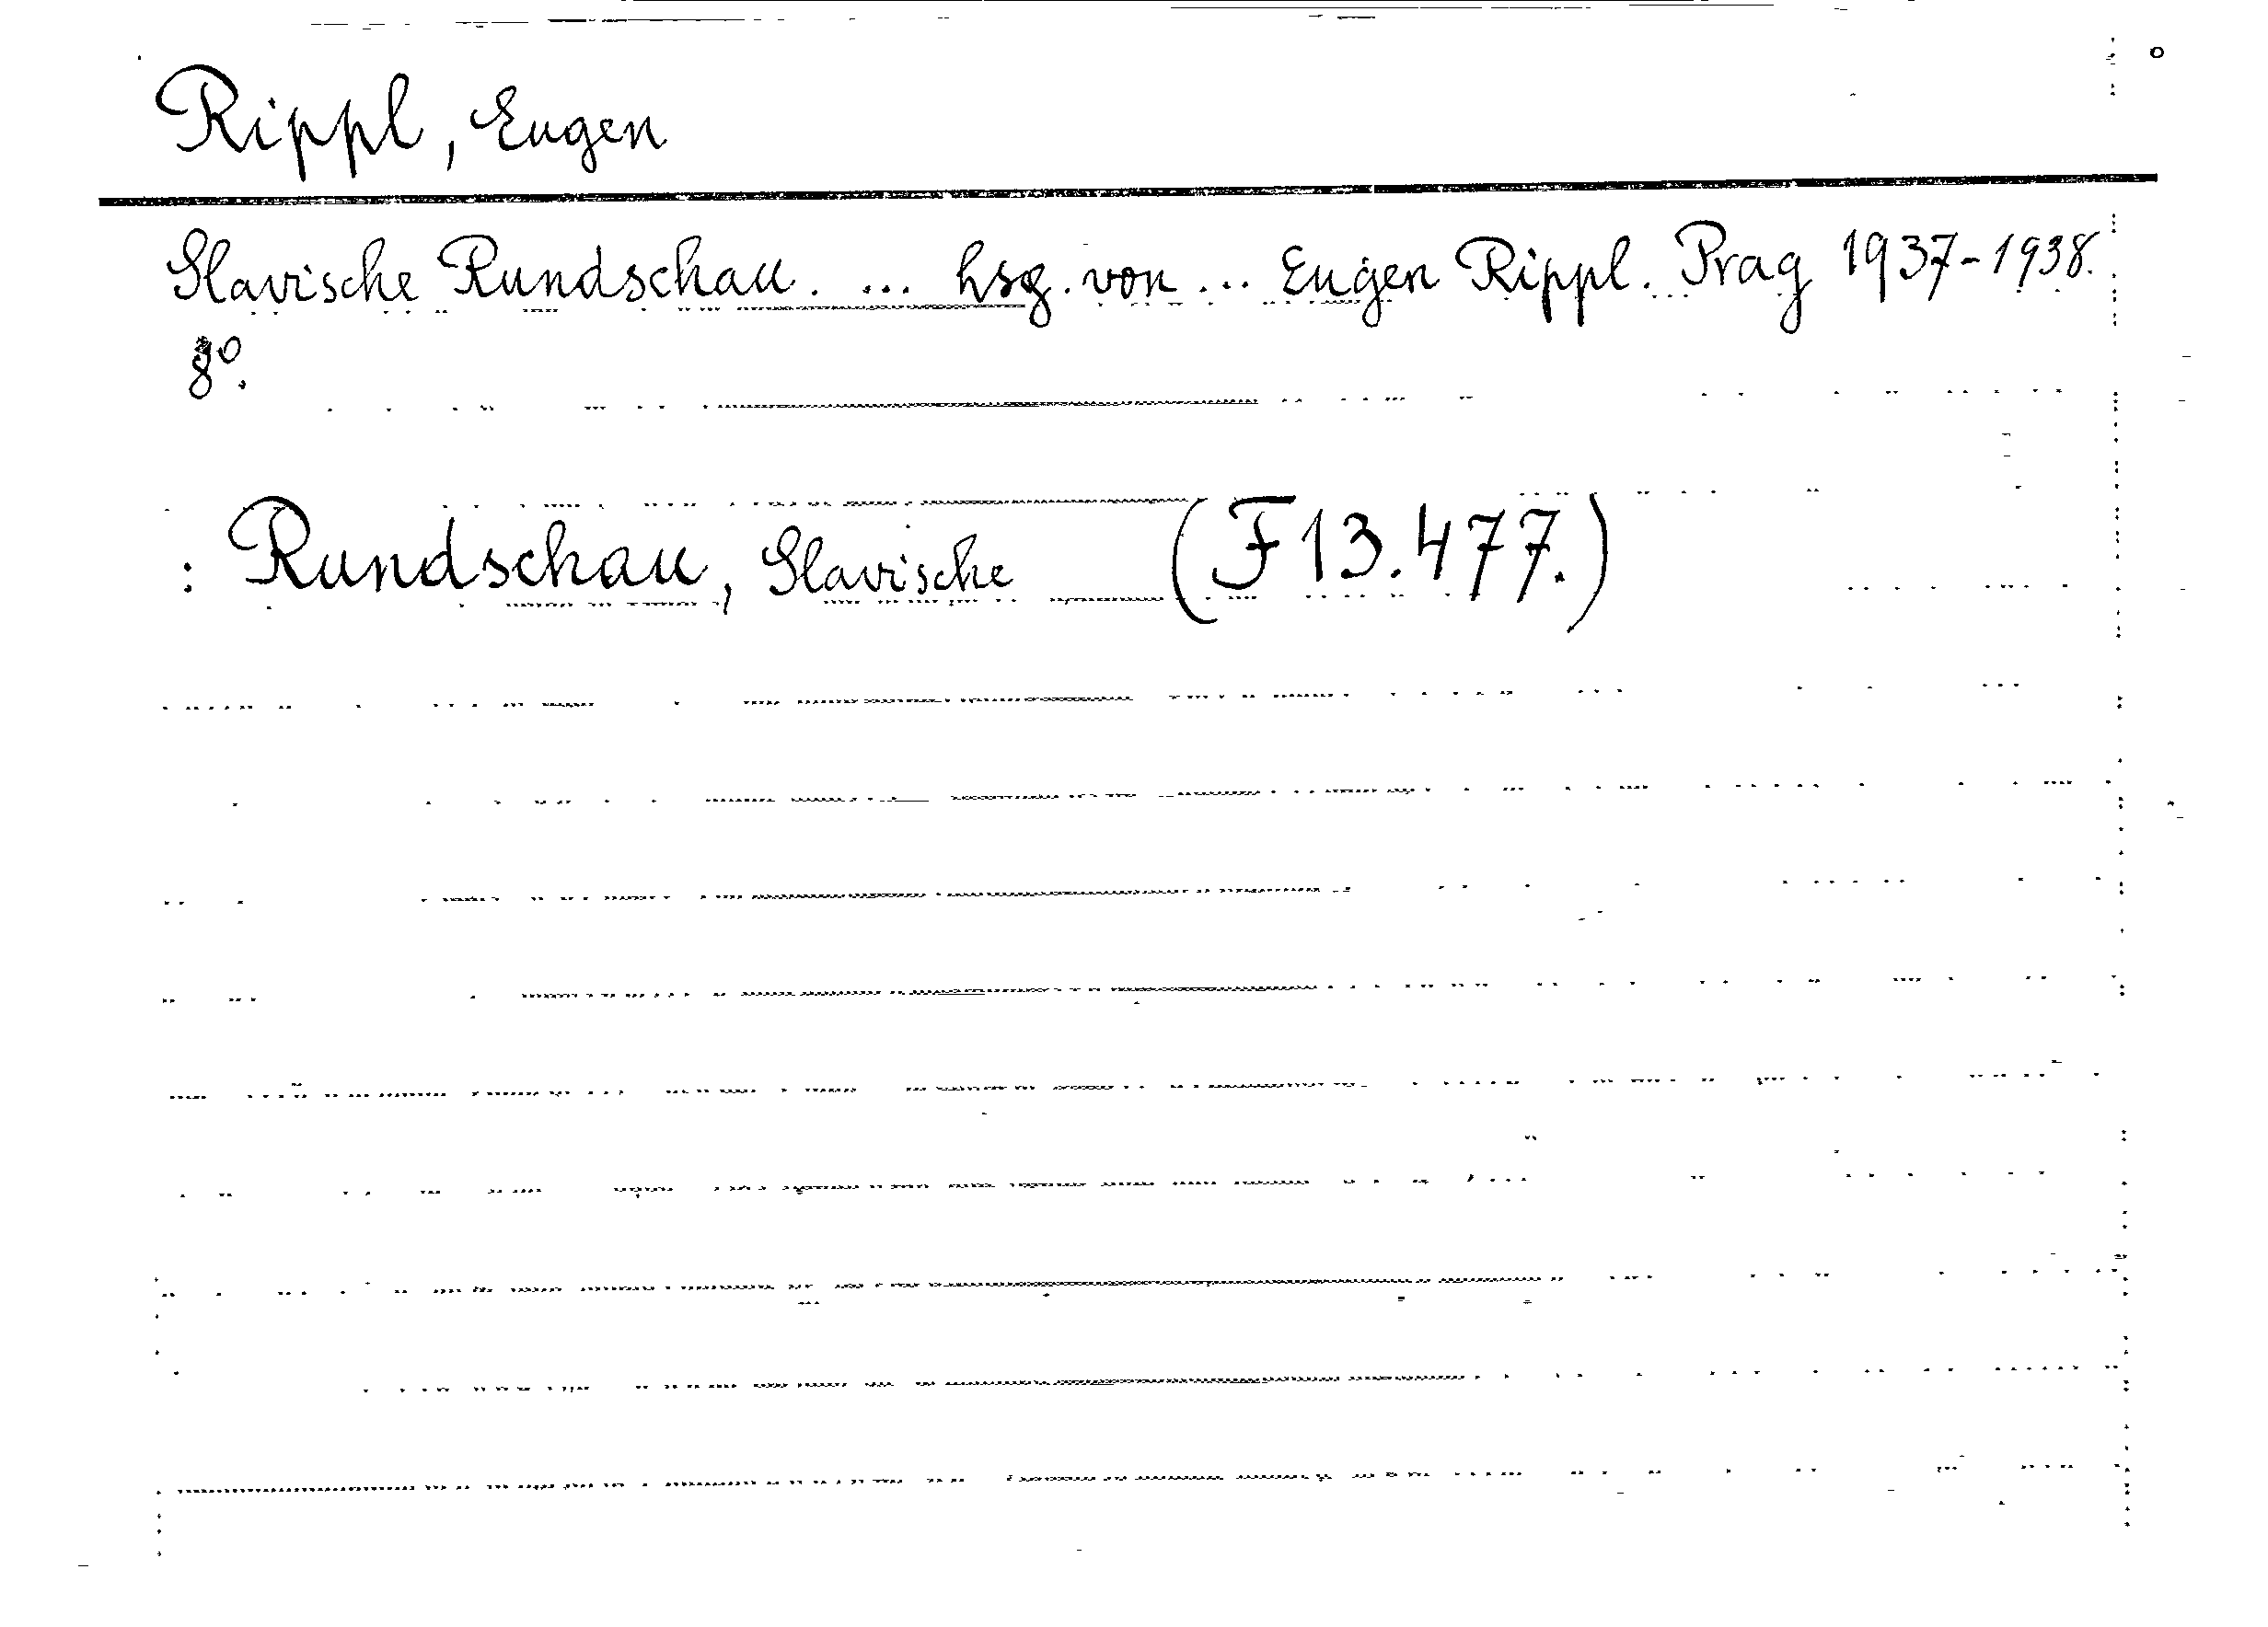 Rippl, Eugen
Slavische Rundschau. ... hsg. von ... Eugen Rippl. Prag 1937-1938.
8°.
: Rundschau, Slavische (F 13.477.)